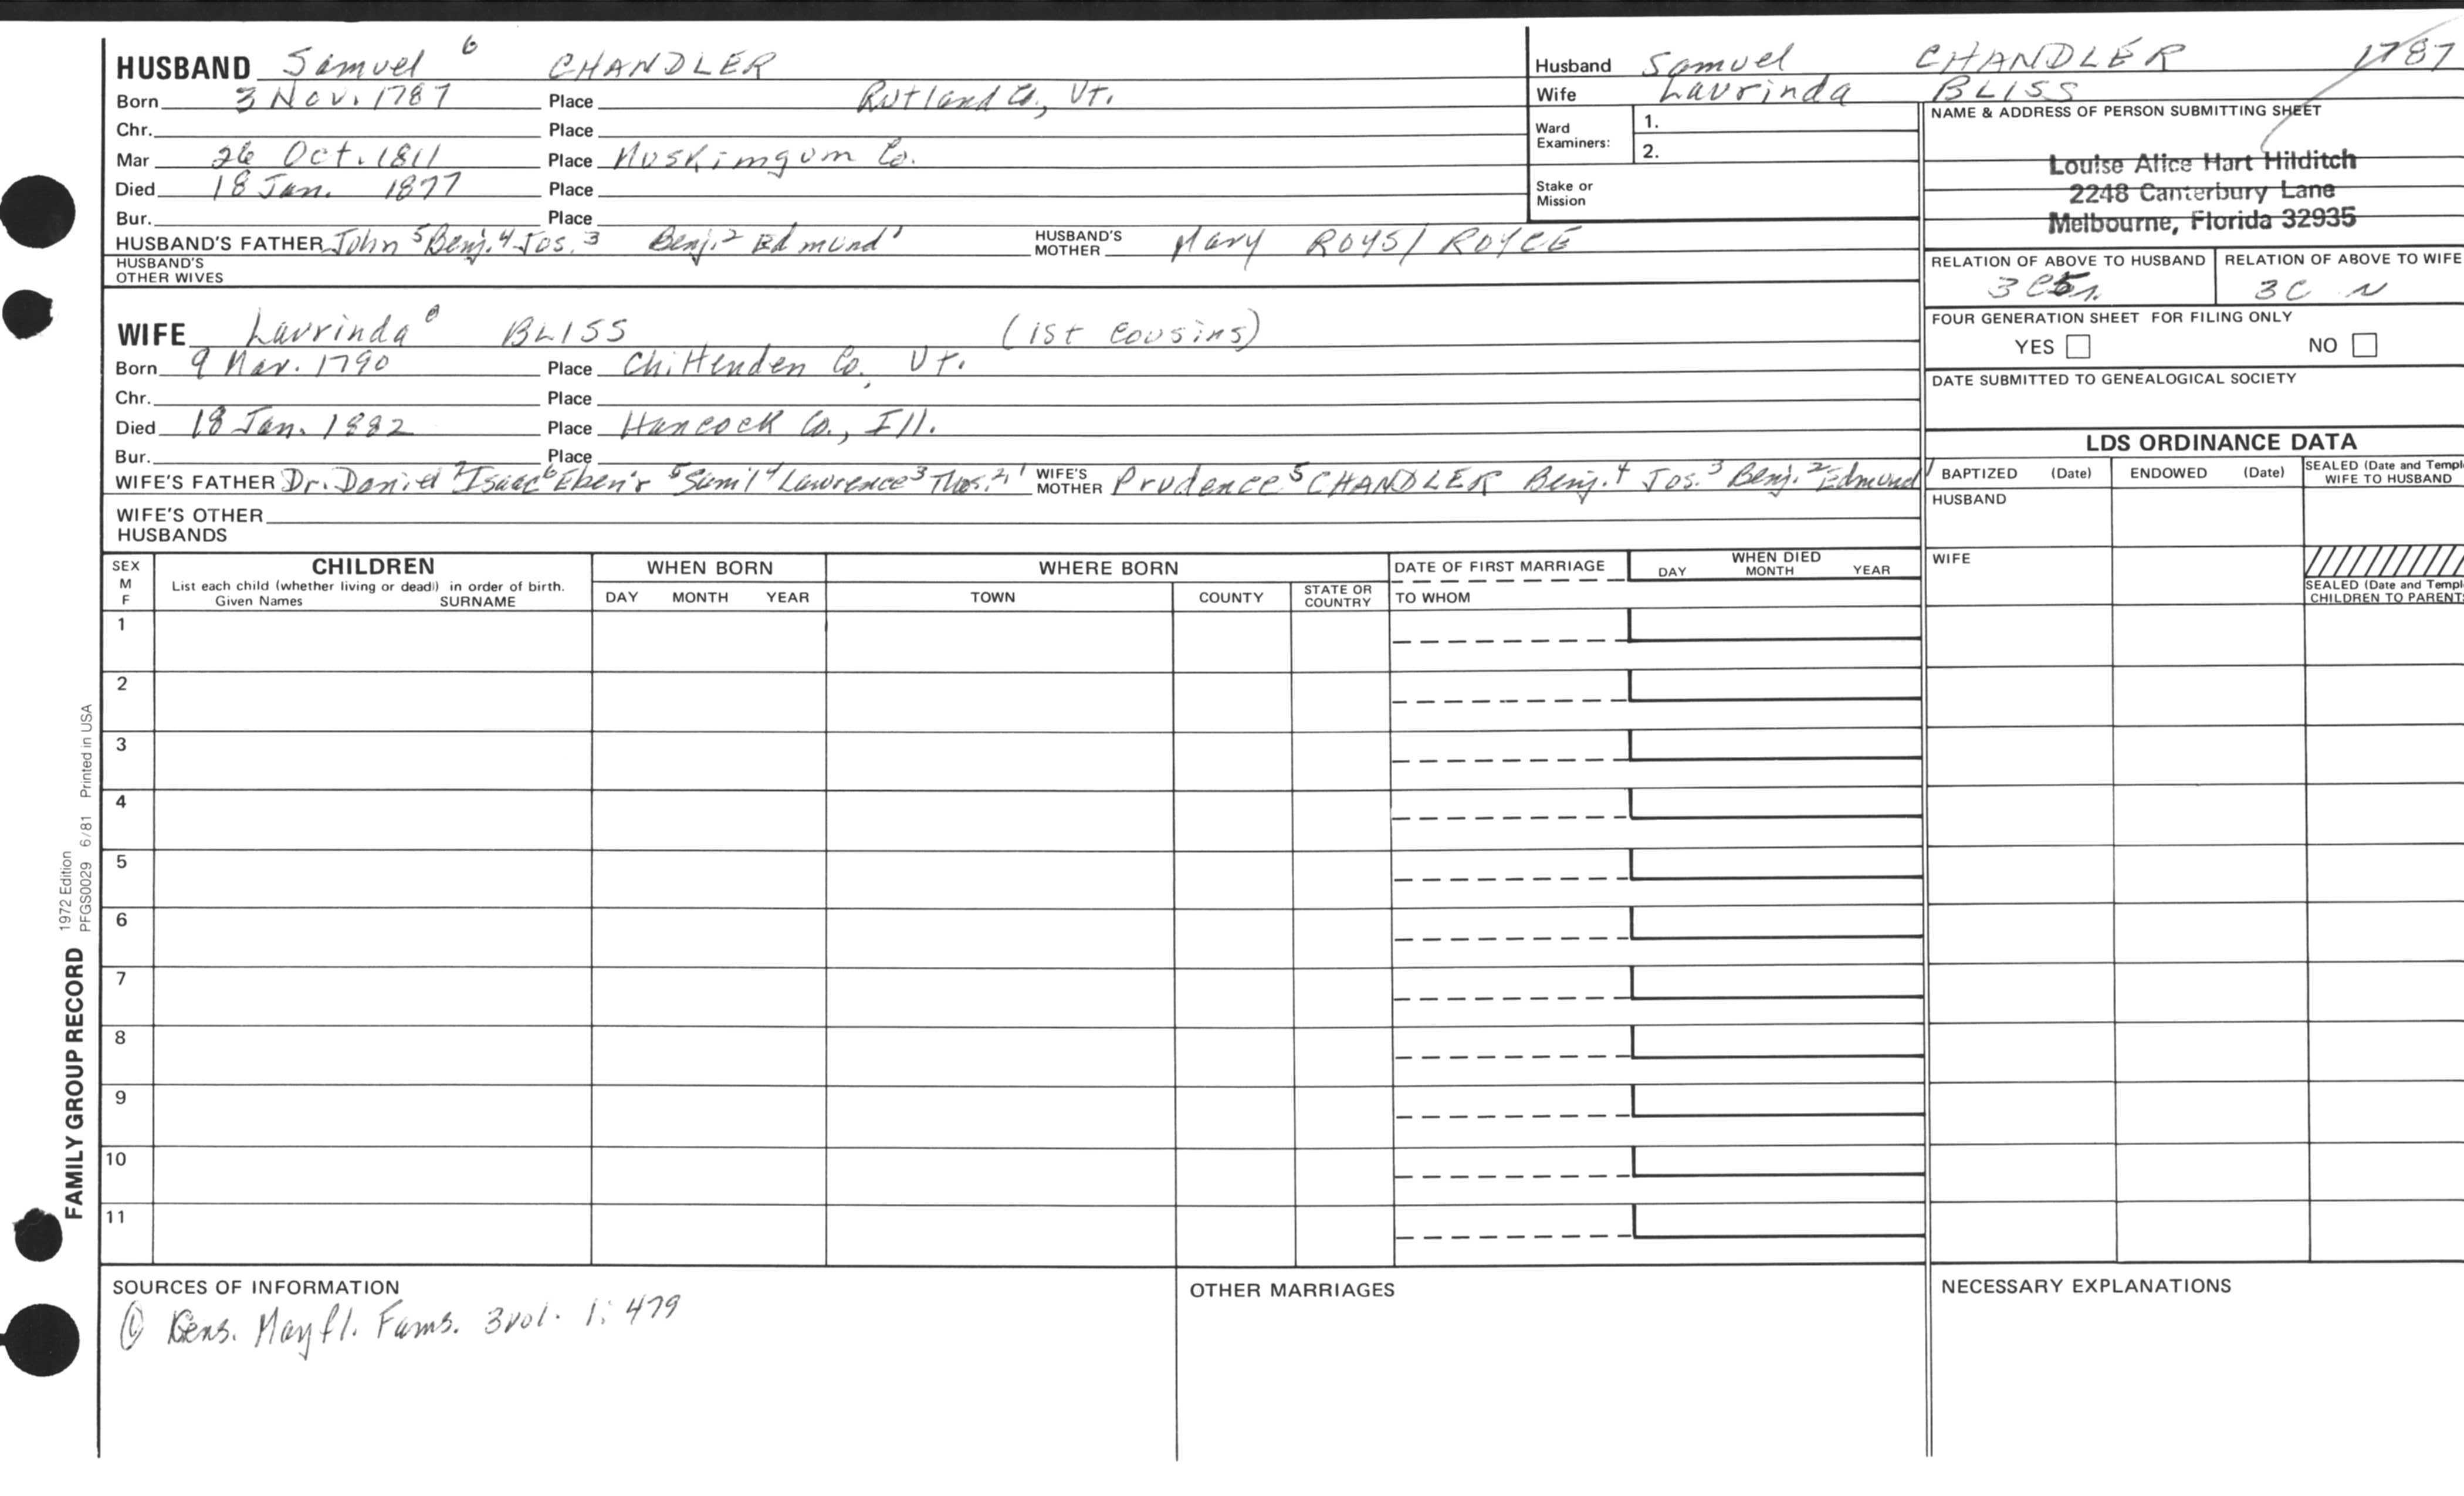 HUSBAND Samuel 6 CHANDLER
Born 3 Nov. 1787 Place Rutland Co., Vt.
Chr. Place
Mar 26 Oct. 1811 Place Muskimgum Co.
Died 18 Jan. 1877 Place
Bur. Place
HUSBAND'S FATHER John 5 Benj. 4 Jos. 3 Benj. 2 Edmund 1 HUSBAND'S MOTHER Mary ROYS/ROYCE
HUSBAND'S OTHER WIVES
WIFE Laurinda 8 BLISS (1st cousins)
Born 9 Mar. 1790 Place Chittenden Co., Vt.
Chr. Place
Died 18 Jan. 1882 Place Hancock Co., Ill.
Bur. Place
WIFE'S FATHER Dr. Daniel 7 Isaac 6 Eben'r 5 Sam'l 4 Lawrence 3 Thos. 2, 1 WIFE'S MOTHER Prudence 5 CHANDLER Benj. 4 Jos. 3 Benj. 2 Edmund 1
WIFE'S OTHER HUSBANDS
Husband Samuel CHANDLER 1787
Wife Laurinda BLISS
Ward Examiners: 1.
2.
Stake or Mission
NAME & ADDRESS OF PERSON SUBMITTING SHEET
Louise Alice Hart Hilditch
2248 Canterbury Lane
Melbourne, Florida 32935
RELATION OF ABOVE TO HUSBAND RELATION OF ABOVE TO WIFE
3C 3C N
FOUR GENERATION SHEET FOR FILING ONLY
YES NO
DATE SUBMITTED TO GENEALOGICAL SOCIETY
LDS ORDINANCE DATA
BAPTIZED (Date) ENDOWED (Date) SEALED (Date and Templ WIFE TO HUSBAND
HUSBAND
WIFE
SEALED (Date and Templ CHILDREN TO PARENTS
SEX M F
CHILDREN
List each child (whether living or dead) in order of birth.
Given Names SURNAME
WHEN BORN
DAY MONTH YEAR
WHERE BORN
TOWN COUNTY STATE OR COUNTRY
DATE OF FIRST MARRIAGE
TO WHOM
WHEN DIED
DAY MONTH YEAR
1
2
3
4
5
6
7
8
9
10
11
SOURCES OF INFORMATION
① Gens. Mayfl. Fams. 3vol. 1: 479
OTHER MARRIAGES
NECESSARY EXPLANATIONS
FAMILY GROUP RECORD
1972 Edition
PFGS0029 6/81 Printed in USA